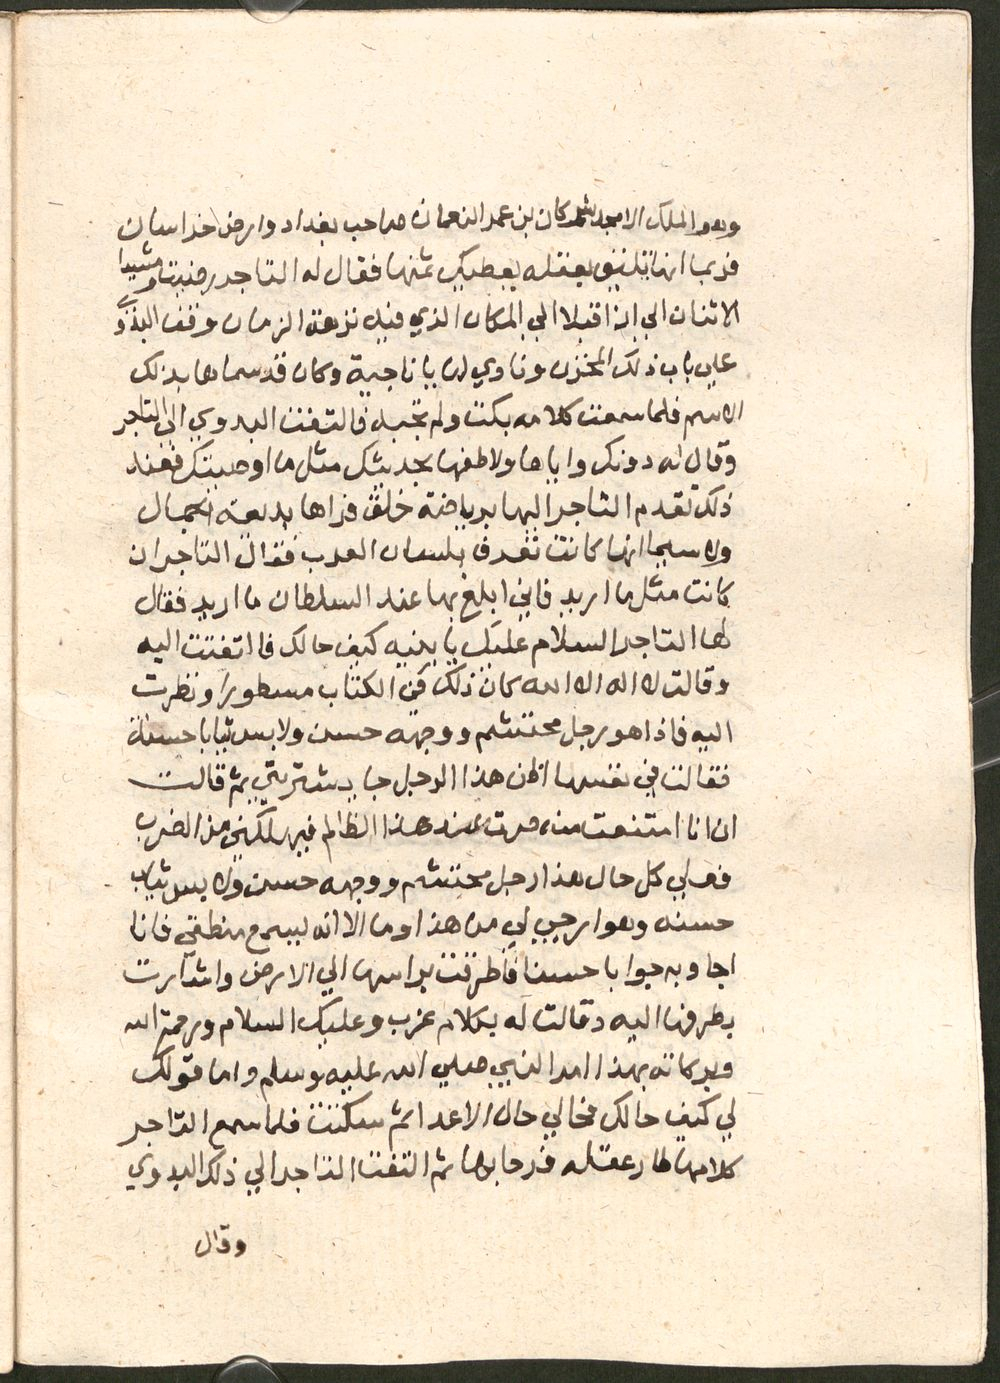 وهو الملك الامجد شركان بن عمر النعمان صاحب بغداد وارض خراسان
فربما انها تليق بعقله يعطيك ثمنها فقال له التاجر رضيت ومشيوا
الاثنان الي ان اقبلا الي المكان الذي فيه نزهة الزمان وقف البدوي
علي باب ذلك المخزن ونادي لها يا ناجية وكان قد سماها بذلك
الاسم فلما سمعت كلامه بكت ولم تجبه فالتفت البدوي الي التاجر
وقال له دونك واياها ولاطفها بحديثك مثل ما اوصيتك فعند
ذلك تقدم التاجر اليها برياضة خلق فراها بديعة الجمال
ولا سيما انها كانت تعرف بلسان العرب فقال التاجر ان
كانت مثل ما اريد فاني ابلغ بها عند السلطان ما اريد فقال
لها التاجر السلام عليك يا بنيه كيف حالك فالتفتت اليه
وقالت لا اله الا الله كان ذلك في الكتاب مسطورا ونظرت
اليه فاذا هو رجل محتشم ووجهه حسن ولابس ثيابا حسنة
فقالت في نفسها اظن هذا الرجل جا يشتريني ثم قالت
ان انا امتنعت منه صرت عند هذا الظالم فيهلكني من الضرب
فعلي كل حال هذا رجل محتشم ووجهه حسن ولابس ثياب
حسنه وهو ارجي لي من هذا وما الا انه ليسمع منطقي فانا
اجاوبه جوابا حسنا فاطرقت براسها الي الارض واشارت
بطرفها اليه وقالت له بكلام عذب وعليك السلام ورحمة الله
وبركاته بهذا امر النبي صلي الله عليه وسلم واما قولك
لي كيف حالك فحالي حال الاعدا ثم سكتت فلما سمع التاجر
كلامها طار عقله فرحا بها ثم التفت التاجر الي ذلك البدوي
وقال